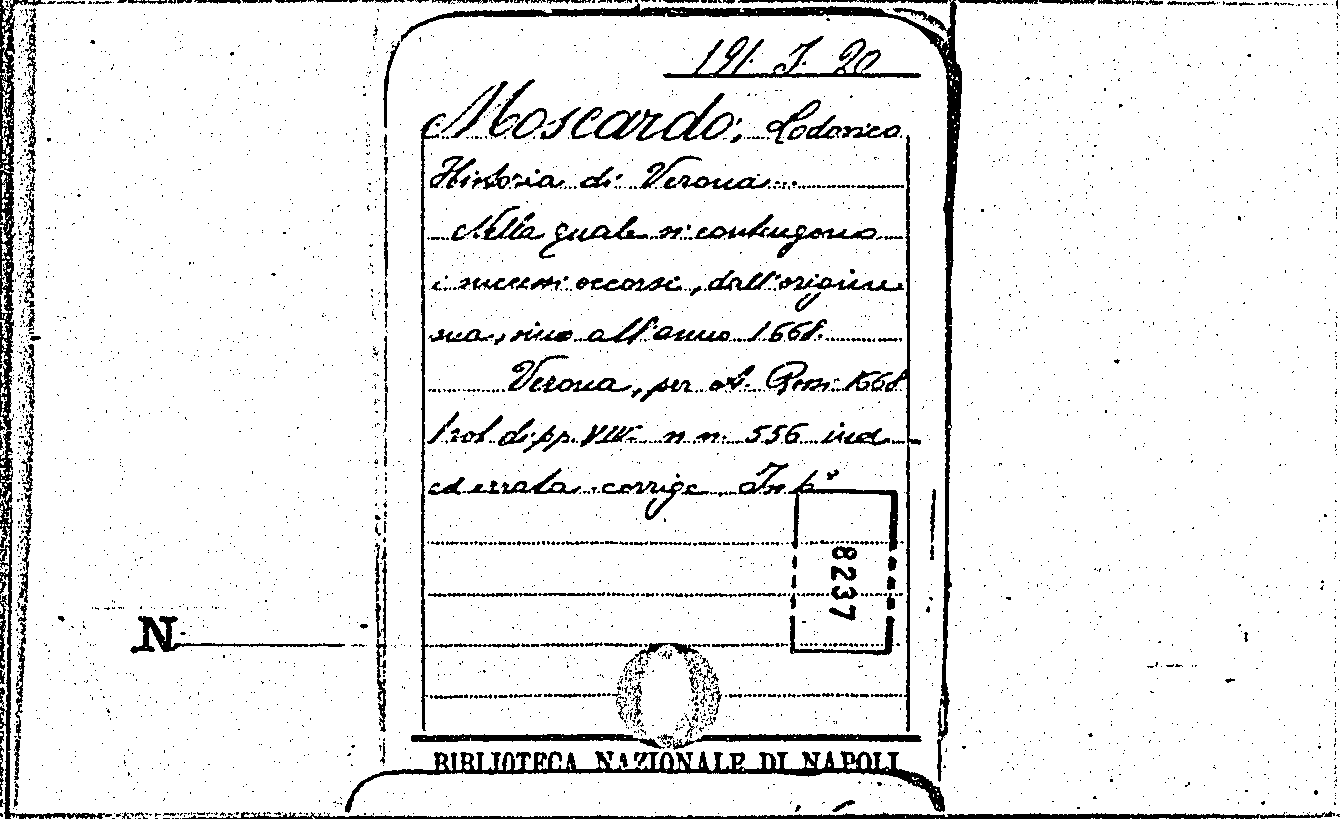 191. J. 20
Moscardo, Lodovico
Historia di Verona...
Nella quale si contengono
i successi occorsi, dall'origine
sua, sino all'anno 1668.
Verona, per A. Rossi 1668
1 vol di pp. VIII n n. 556 ind
ed errata-corrige In 4°
8237
N
BIBLIOTECA NAZIONALE DI NAPOLI